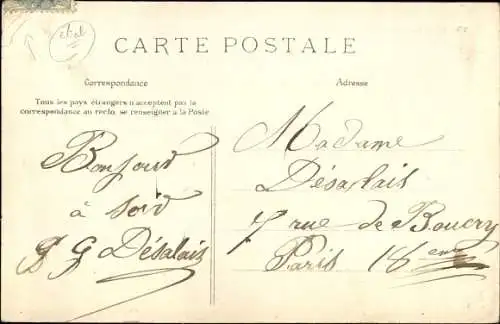 état
CARTE POSTALE
Correspondance
Adresse
Tous les pays étrangers n'acceptent pas la
correspondance au recto, se renseigner à la Poste
Bonjour
à Soir
G Désalais
Madame
Désalais
7 rue de Boucry
Paris 18eme